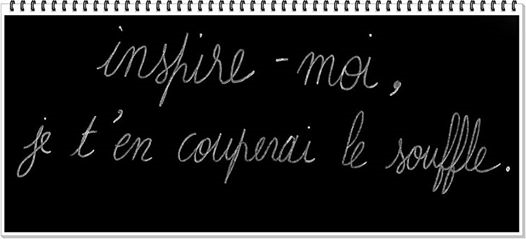 inspire-moi,
je t'en couperai le souffle.